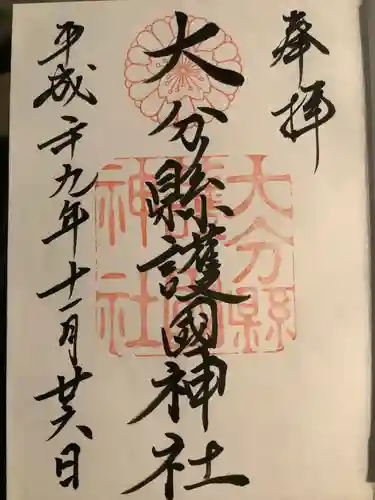 奉拝
大分縣護國神社
平成廿九年十一月廿六日
大分縣
護國
神社